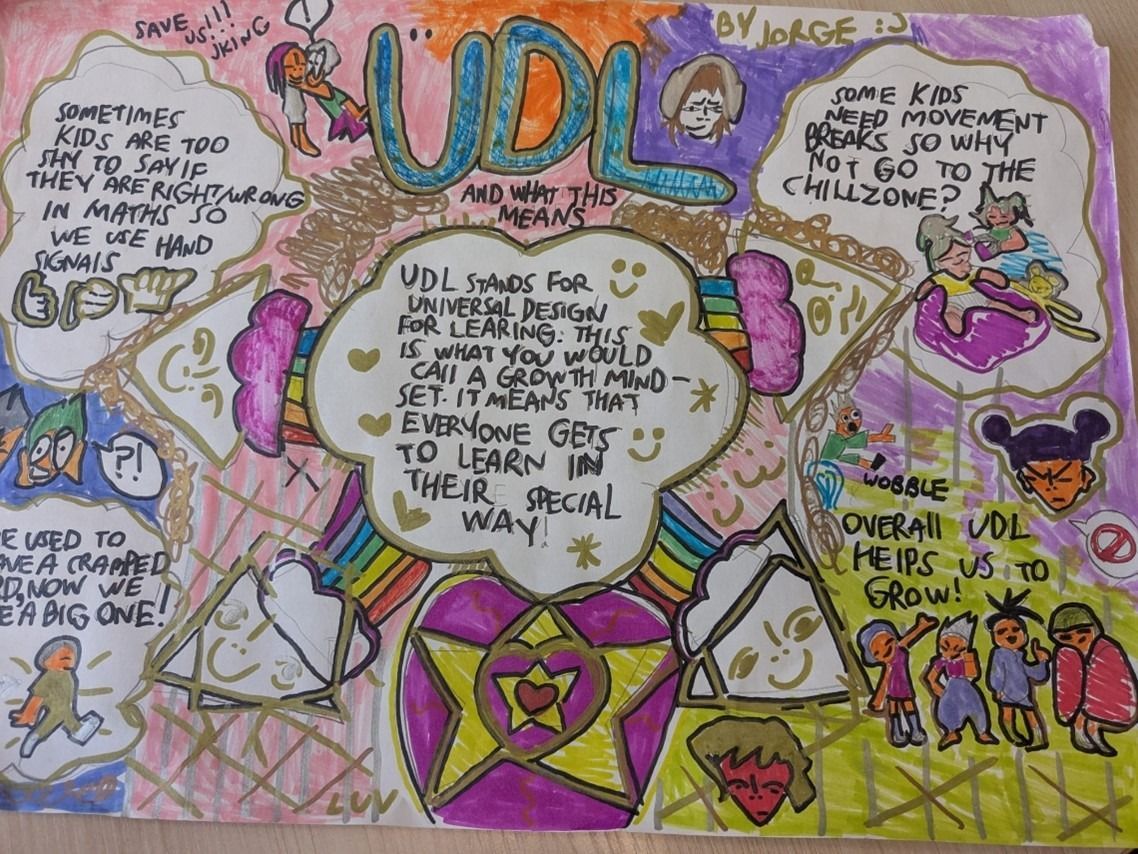 SAVE!!!
US!!
JKING
!
ÜDL
BY JORGE :J
AND WHAT THIS
MEANS
SOMETIMES
KIDS ARE TOO
SHY TO SAY IF
THEY ARE RIGHT/WRONG
IN MATHS SO
WE USE HAND
SIGNALS
SOME KIDS
NEED MOVEMENT
BREAKS SO WHY
NOT GO TO THE
CHILLZONE?
UDL STANDS FOR
UNIVERSAL DESIGN
FOR LEARING: THIS
IS WHAT YOU WOULD
CALL A GROWTH MIND-
SET. IT MEANS THAT
EVERYONE GETS
TO LEARN IN
THEIR SPECIAL
WAY!
?!
USED TO
A CRAPPED
NOW WE
A BIG ONE!
WOBBLE
OVERALL UDL
HELPS US TO
GROW!
LUV